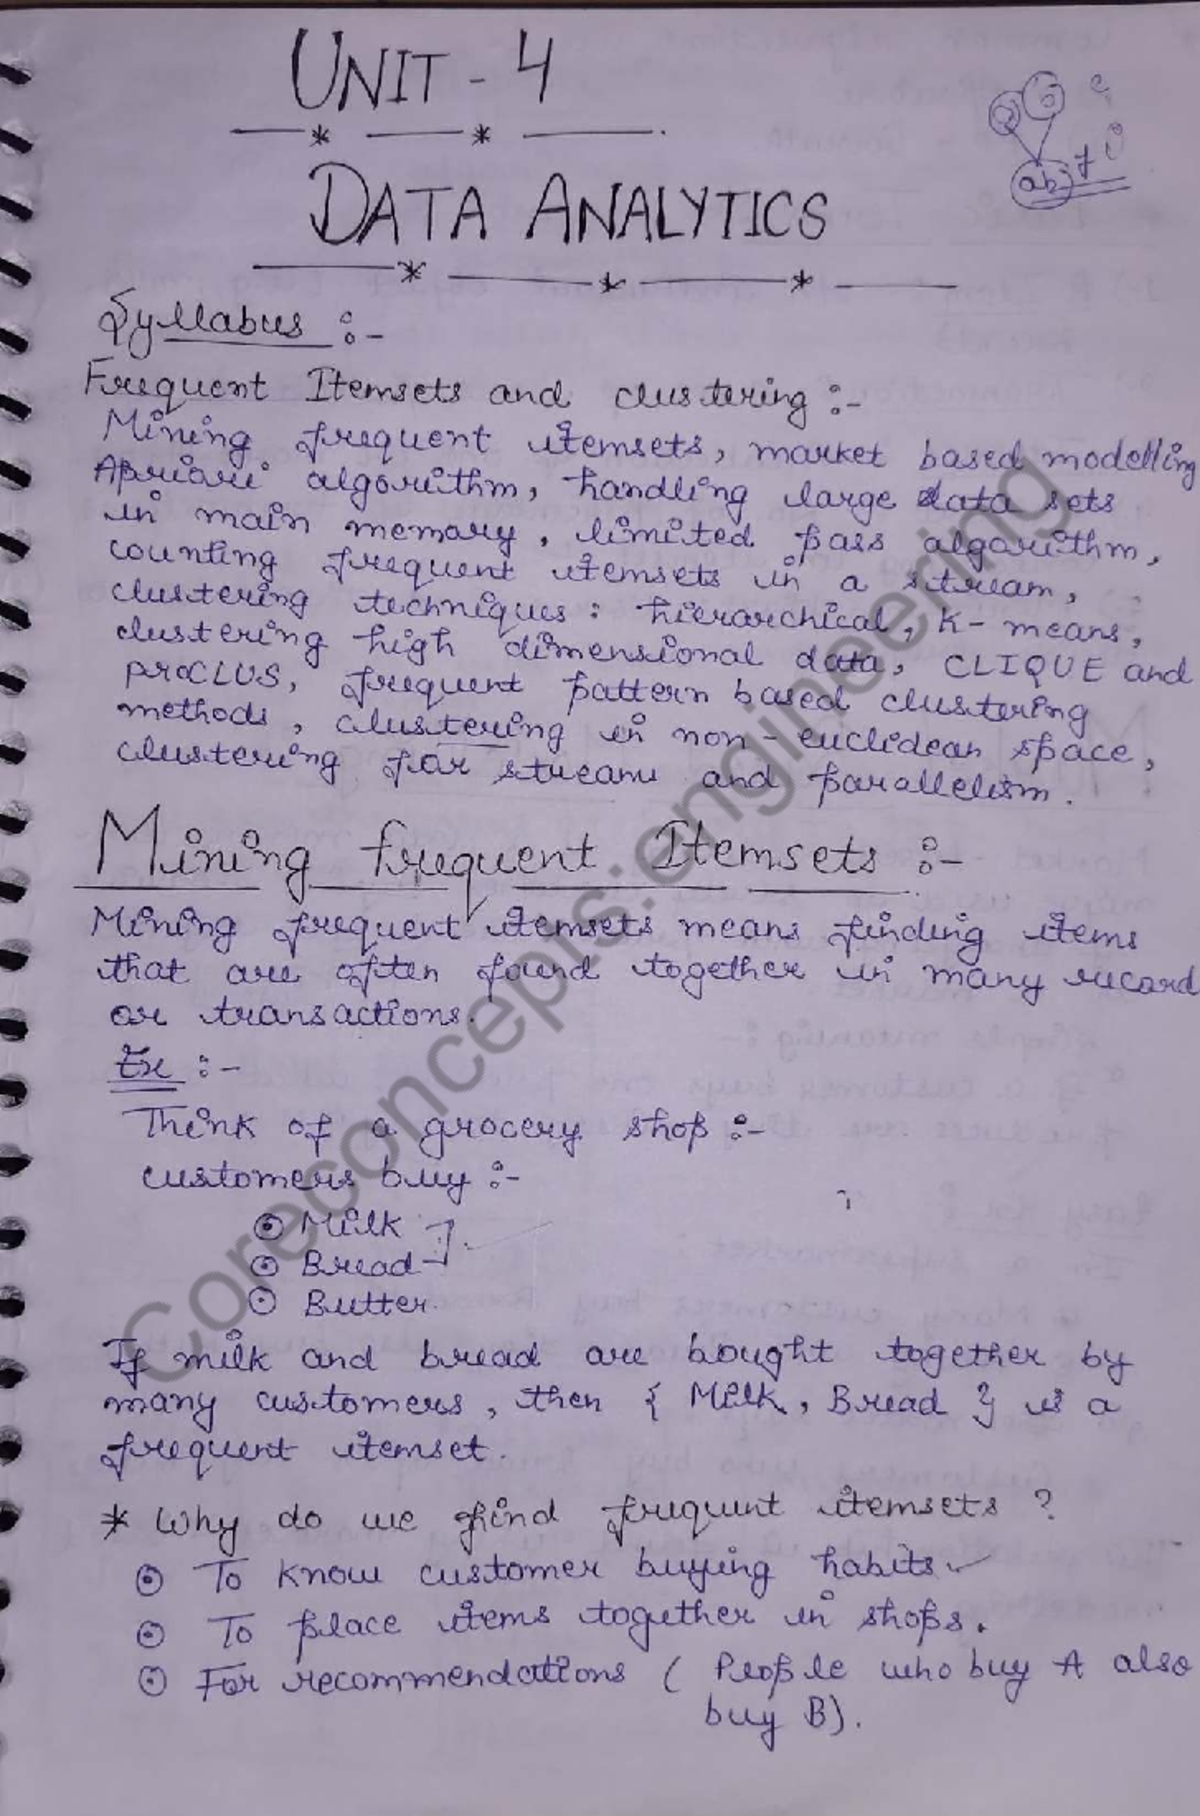 UNIT - 4
DATA ANALYTICS
ab
Syllabus :-
Frequent Itemsets and clustering :-
Mining frequent itemsets, market based modelling
Apriori algorithm, handling large data sets
in main memory, limited pass algorithm,
counting frequent itemsets in a stream,
clustering techniques: hierarchical, K-means,
clustering high dimensional data, CLIQUE and
ProCLUS, frequent pattern based clustering
methods, clustering in non-euclidean space,
clustering for stream and parallelism.
Mining frequent Itemsets :-
Mining frequent itemsets means finding items
that are often found together in many record
or transactions.
Ex :-
Think of a grocery shop :-
customers buy :-
Milk
Bread
Butter.
If milk and bread are bought together by
many customers, then { Milk, Bread } is a
frequent itemset.
* Why do we find frequent itemsets ?
To know customer buying habits
To place items together in shops.
For recommendations ( People who buy A also
buy B).
Coreconcepts:engineering